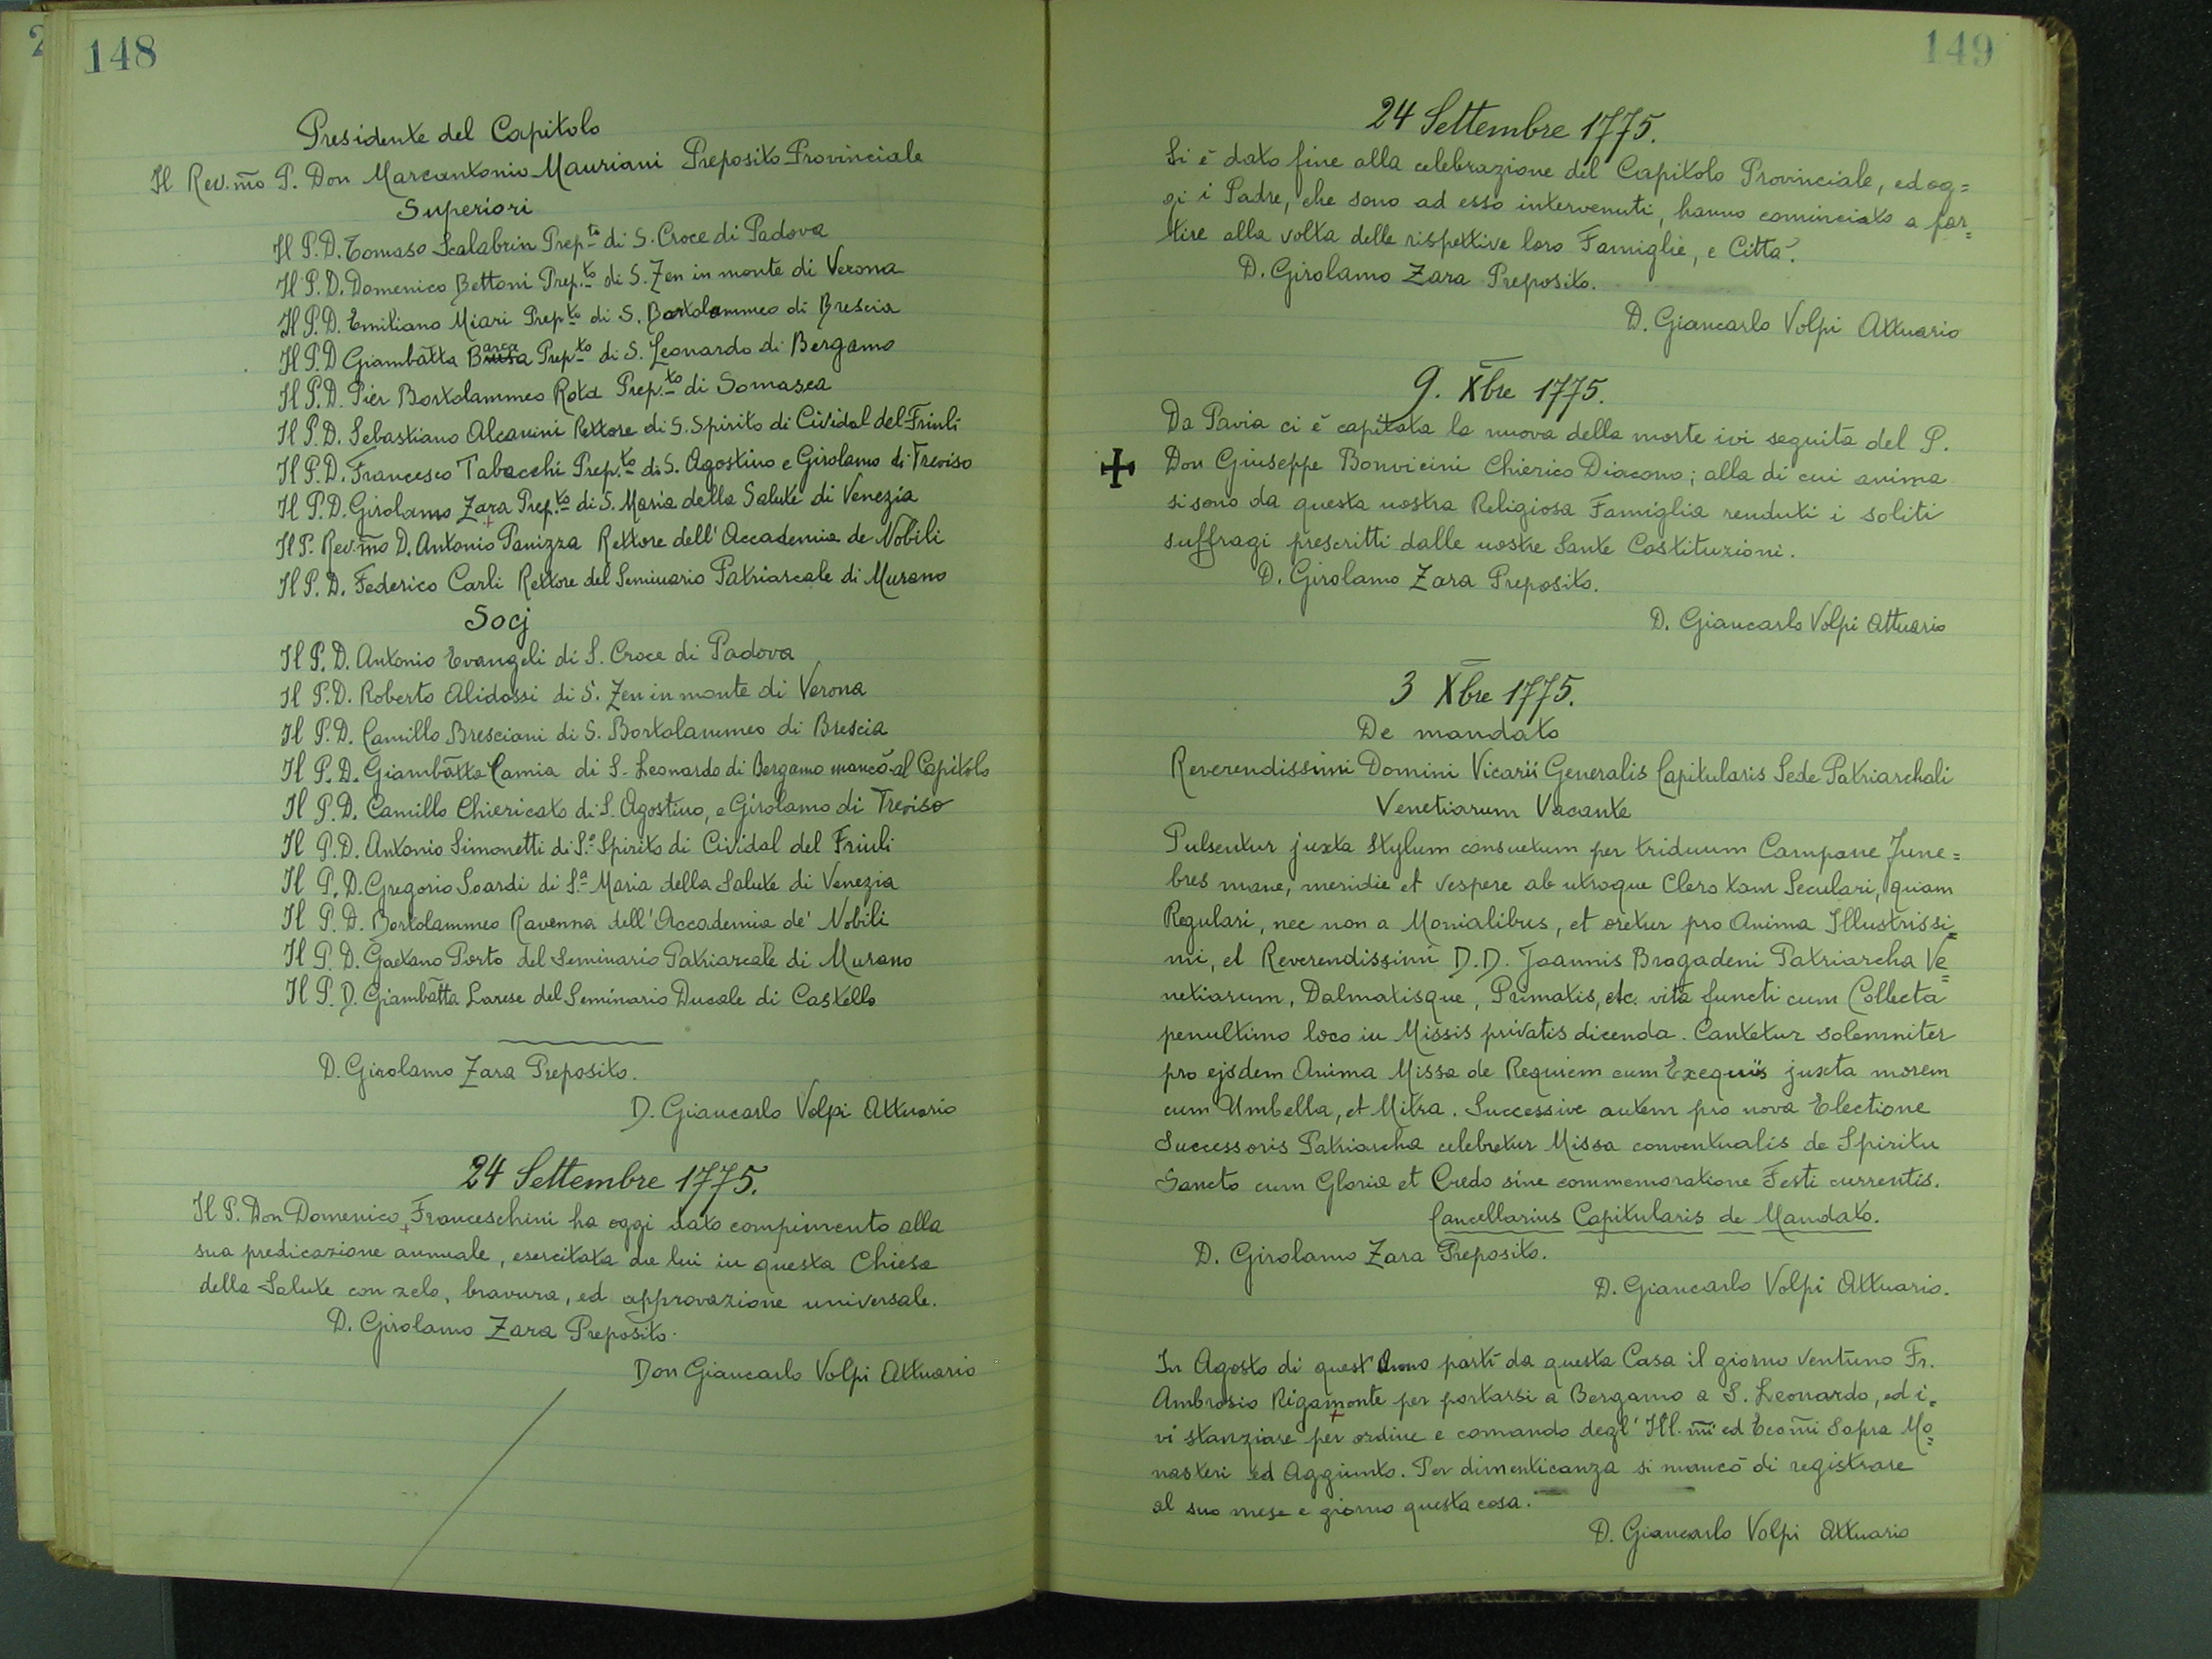 148
Presidente del Capitolo
Il Rev.m̃o P. Don Marcantonio Mauriani Preposito Provinciale
Superiori
Il P. D. Tomaso Scalabrin Prep.to di S. Croce di Padova
Il P. D. Domenico Bettoni Prep.to di S. Zen in monte di Verona
Il P. D. Emiliano Miari Prep.to di S. Bartolammeo di Brescia
Il P. D Giambãtta Barca Prep.to di S. Leonardo di Bergamo
Il P. D. Pier Bortolammeo Rota Prep.to di Somasca
Il P. D. Sebastiano Alcaini Rettore di S. Spirito di Cividal del Friuli
Il P. D. Francesco Tabacchi Prep.to di S. Agostino e Girolamo di Treviso
Il P. D. Girolamo Zara Prep.to di S. Maria della Salute di Venezia
Il P. Rev.m̃o D. Antonio Panizza Rettore dell'Accademia de Nobili
Il P. D. Federico Carli Rettore del Seminario Patriarcale di Murano
Socj
Il P. D. Antonio Evangeli di S. Croce di Padova
Il P. D. Roberto Alidossi di S. Zen in monte di Verona
Il P. D. Camillo Bresciani di S. Bortolammeo di Brescia
Il P. D. Giambãtta Camia di S. Leonardo di Bergamo mancò al Capitolo
Il P. D. Camillo Chiericato di S. Agostino, e Girolamo di Treviso
Il P. D. Antonio Simonetti di S.o Spirito di Cividal del Friuli
Il P. D. Gregorio Soardi di S.a Maria della Salute di Venezia
Il P. D. Bortolammeo Ravenna dell'Accademia de' Nobili
Il P. D. Gaetano Porto del Seminario Patriarcale di Murano
Il P. D. Giambãtta Larese del Seminario Ducale di Castello
D. Girolamo Zara Preposito.
D. Giancarlo Volpi Attuario
24 Settembre 1775.
Il P. Don Domenico Franceschini ha oggi dato compimento alla
sua predicazione annuale, esercitata da lui in questa Chiesa
della Salute con zelo, bravura, ed approvazione universale.
D. Girolamo Zara Preposito.
Don Giancarlo Volpi Attuario
149
24 Settembre 1775.
Si è dato fine alla celebrazione del Capitolo Provinciale, ed og=
gi i Padre, che sono ad esso intervenuti, hanno cominciato a par=
tire alla volta delle rispettive loro Famiglie, e Città.
D. Girolamo Zara Preposito.
D. Giancarlo Volpi Attuario
9. Xbre 1775.
Da Pavia ci è capitata la nuova della morte ivi seguita del P.
Don Giuseppe Bonvicini Chierico Diacono; alla di cui anima
si sono da questa nostra Religiosa Famiglia renduti i soliti
suffragi prescritti dalle nostre Sante Costituzioni.
D. Girolamo Zara Preposito.
D. Giancarlo Volpi Attuario
3 Xbre 1775.
De mandato
Reverendissimi Domini Vicarii Generalis Capitularis Sede Patriarchali
Venetiarum Vacante
Pulsentur juxta Stylum consuetum per triduum Campane Fune=
bres mane, meridie et Vespere ab utroque Clero tam Seculari, quam
Regulari, nec non a Monialibus, et oretur pro Anima Illustrissi=
mi, et Reverendissimi D. D. Joannis Bragadeni Patriarcha Ve=
netiarum, Dalmatisque, Primatis, etc. vita functi cum Collecta
penultimo loco in Missis privatis dicenda. Cantetur solemniter
pro ejsdem Anima Missa de Requiem cum Exequiis juxta morem
cum Umbella, et Mitra. Successive autem pro nova Electione
Successoris Patriarcha celebretur Missa conventualis de Spiritu
Sancto cum Gloria et Credo sine commemoratione Festi currentis.
Cancellarius Capitularis de Mandato.
D. Girolamo Zara Preposito.
D. Giancarlo Volpi Attuario.
In Agosto di quest'Anno partì da questa Casa il giorno ventuno Fr.
Ambrosio Rigamonte per portarsi a Bergamo a S. Leonardo, ed i=
vi stanziare per ordine e comando degl'Ill.m̃i ed Eccm̃i Sopra Mo=
nasteri ed Aggiunto. Per dimenticanza si mancò di registrare
al suo mese e giorno questa cosa.
D. Giancarlo Volpi Attuario